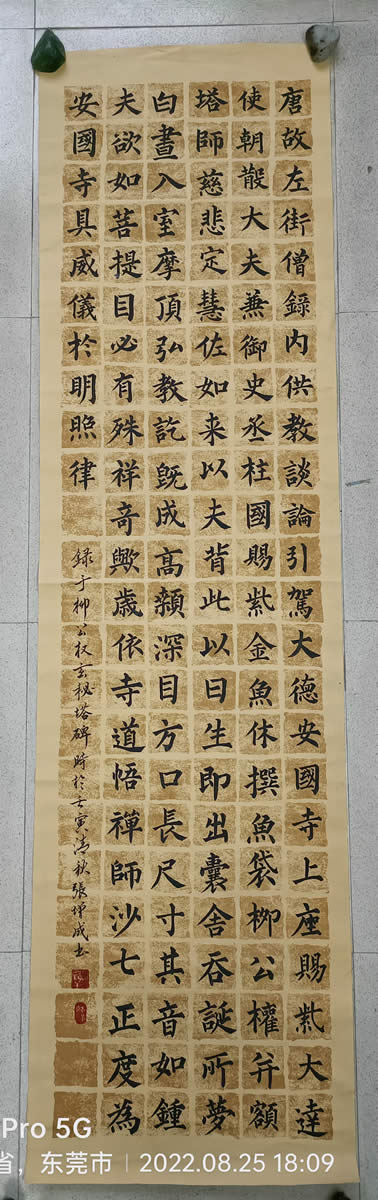 唐故左街僧録内供教談論引駕大德安國寺上座賜紫大達
使朝散大夫兼御史丞柱國賜紫金魚休撰魚袋柳公權并額
塔師慈悲定慧佐如来以夫背此以曰生即出囊舍吞誕所夢
白晝入室摩頂弘教訖既成高顙深目方口長尺寸其音如鍾
夫欲如菩提目必有殊祥奇歟歲依寺道悟禪師沙七正度為
安國寺具威儀於明照律
録于柳公权玄秘塔碑時於壬寅清秋張增成书
Pro 5G
省，东莞市 | 2022.08.25 18:09